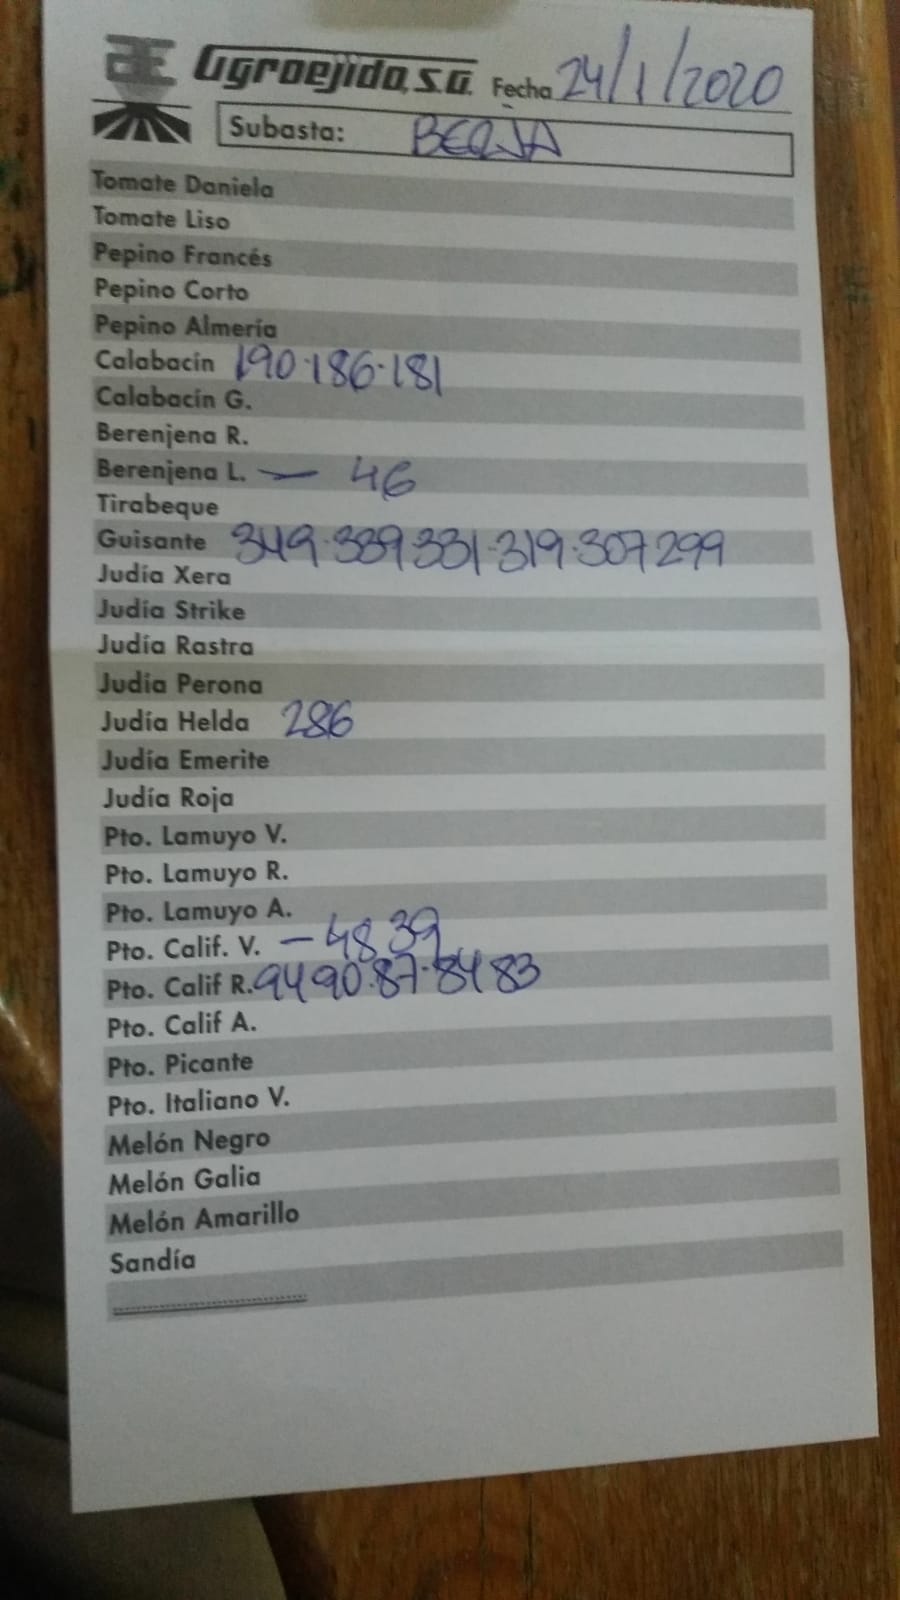 AE Agroejido, S.A. Fecha 24/1/2020
Subasta: BERJA
Tomate Daniela
Tomate Liso
Pepino Francés
Pepino Corto
Pepino Almería
Calabacín 190·186·181
Calabacín G.
Berenjena R.
Berenjena L. — 46
Tirabeque
Guisante 349·339 331·319·307 299
Judía Xera
Judía Strike
Judía Rastra
Judía Perona
Judía Helda 286
Judía Emerite
Judía Roja
Pto. Lamuyo V.
Pto. Lamuyo R.
Pto. Lamuyo A.
Pto. Calif. V. — 48 39
Pto. Calif R. 94 90·87·84 83
Pto. Calif A.
Pto. Picante
Pto. Italiano V.
Melón Negro
Melón Galia
Melón Amarillo
Sandía